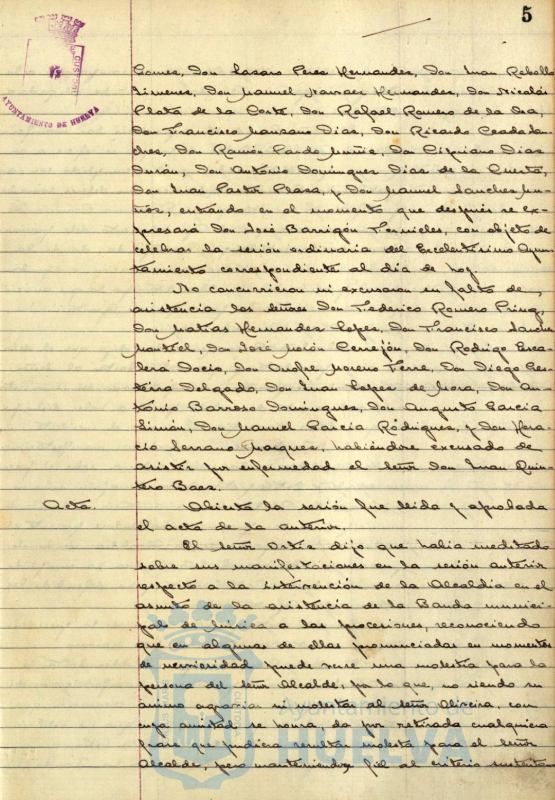 5
CUSTODIT
AYUNTAMIENTO DE HUELVA
Gomes, Don Casaro Peres Hernandes, Don Juan Rebollo
Jimenes, Don Manuel Narvaes Hernandes, Don Nicolás
Plata de la Corte, Don Rafael Romero de la Osa,
Don Francisco Manzano Dias, Don Ricardo Ceada San-
ches, Don Ramón Pardo Muñiz, Don Cipriano Dias
Durán, Don Antonio Domingues Dias de la Cuesta,
Don Juan Pastor Plaza, y Don Manuel Sanches Mu-
ños, entrando en el momento que después se ex-
presará Don José Barrigón Fornieles, con objeto de
celebrar la sesión ordinaria del Excelentísimo Ayun-
tamiento correspondiente al día de hoy.
No concurrieron ni excusaron su falta de
asistencia los señores Don Federico Romero Pring,
Don Matías Hernandes Lopes, Don Francisco
Montiel, Don José Morón Cerrejón, Don Rodrigo Esca-
lera Socio, Don Onofre Moreno Ferre, Don Diego
Delgado, Don Juan Lopes de Mora, Don An-
tonio Barroso Domingues, Don Augusto Garcia
Simón, Don Manuel Garcia Rodrigues, y Don Hora-
cio Serrano Marques, habiéndose excusado de
asistir por enfermedad el señor Don Juan Quin-
tero Baez.
Acta. Abierta la sesión fue leida y aprobada
el acta de la anterior.
El señor Ortiz dijo que había meditado
sobre sus manifestaciones en la sesión anterior
respecto a la intervención de la Alcaldía en el
asunto de la asistencia de la Banda munici-
pal de música a las procesiones, reconociendo
que en algunas de ellas pronunciadas en momentos
de nerviosidad puede verse una molestia para la
persona del señor Alcalde, por lo que, no siendo su
ánimo agraviar ni molestar al señor Oliveira, con
cuya amistad se honra, da por retirada cualquiera
frase que pudiera resultar molesta para el señor
Alcalde, pero manteniendose fiel al criterio sustentado
Ayuntamiento de
HUELVA